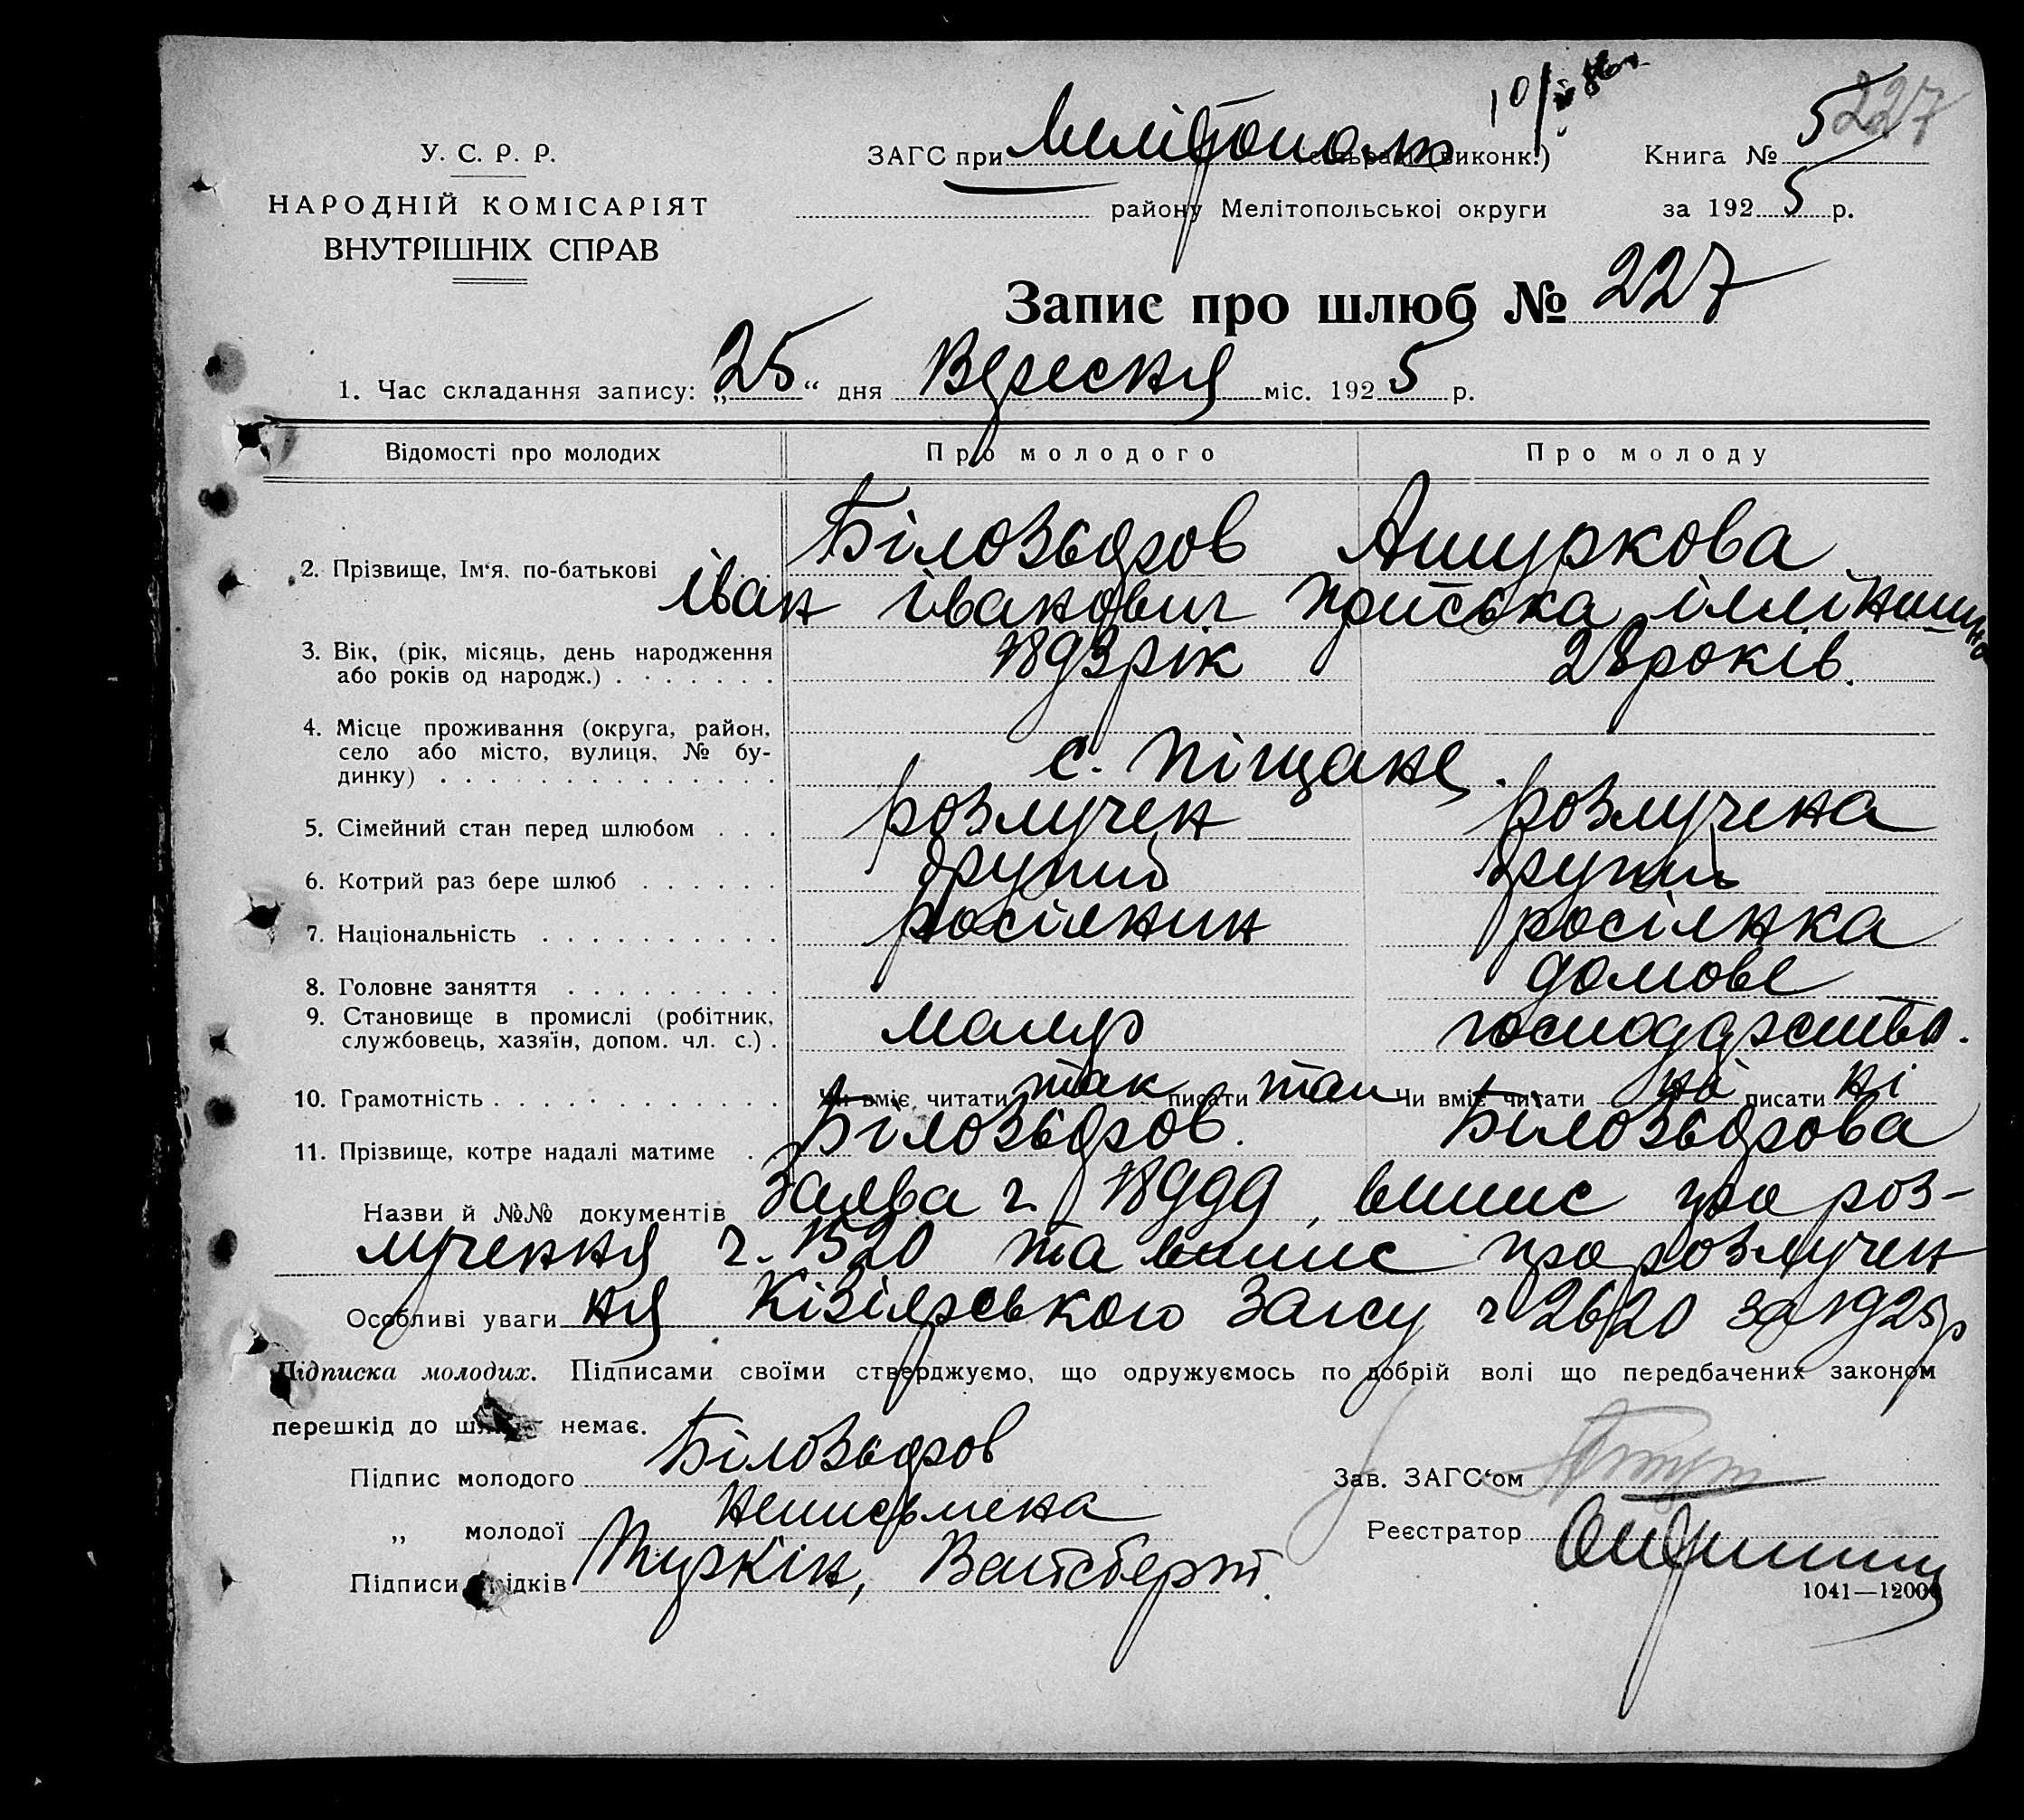 227
У. С. Р. Р.
НАРОДНІЙ КОМІСАРІЯТ
ВНУТРІШНІХ СПРАВ
ЗАГС при Мелітополь сільраді (виконк.)
Книга № 5
району Мелітопольської округи
за 1925 р.
Запис про шлюб № 227
1. Час складання запису: „25“ дня Вересня міс. 1925 р.
Відомості про молодих Про молодого Про молоду
2. Прізвище, Ім‘я, по-батькові Білозьоров Ашуркова
Іван Іванович Приська
3. Вік, (рік, місяць, день народження 1893 рік 28 років.
або років од народж.)
4. Місце проживання (округа, район,
село або місто, вулиця, № бу-
динку) с. Піщане.
5. Сімейний стан перед шлюбом розлучен розлучена
6. Котрий раз бере шлюб другий другий
7. Національність росіянин росіянка
8. Головне заняття домове
9. Становище в промислі (робітник, маляр господарство.
службовець, хазяїн, допом. чл. с.)
10. Грамотність Чи вміє читати так писати так Чи вміє читати ні писати ні
11. Прізвище, котре надалі матиме Білозьоров. Білозьорова
Назви й №№ документів Заява ч. 18999, випис про роз-
лучення ч. 1520 та випис про розлучен
Особливі уваги ня Кізіярського Загсу ч 26/20 за 1925 р
Підписка молодих. Підписами своїми стверджуємо, що одружуємось по добрій волі що передбачених законом
перешкід до немає.
Підпис молодого Білозьоров
Зав. ЗАГС‘ом
„ молодої Неписьмена
Реєстратор
Підписи Туркін, Вайсберг.
1041—1200